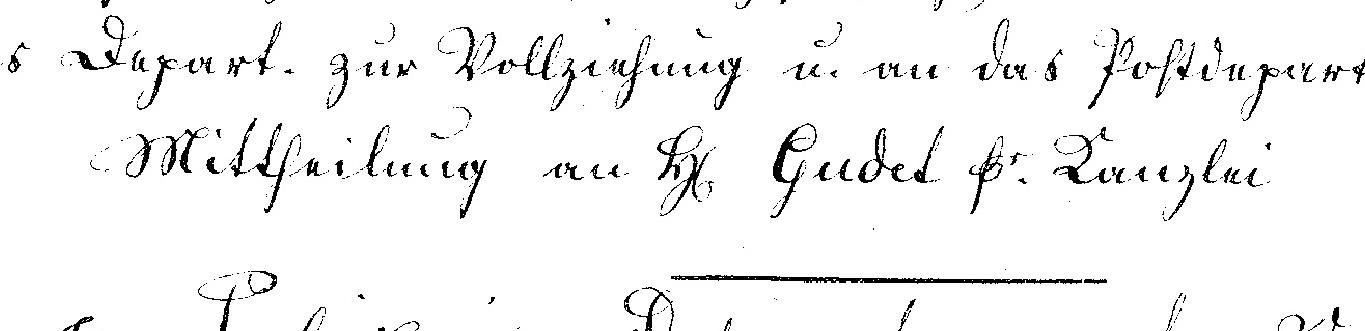 s Depart. zur Vollziehung u. an das Postdepart
Mittheilung an H. Gudet pr. Kanzlei